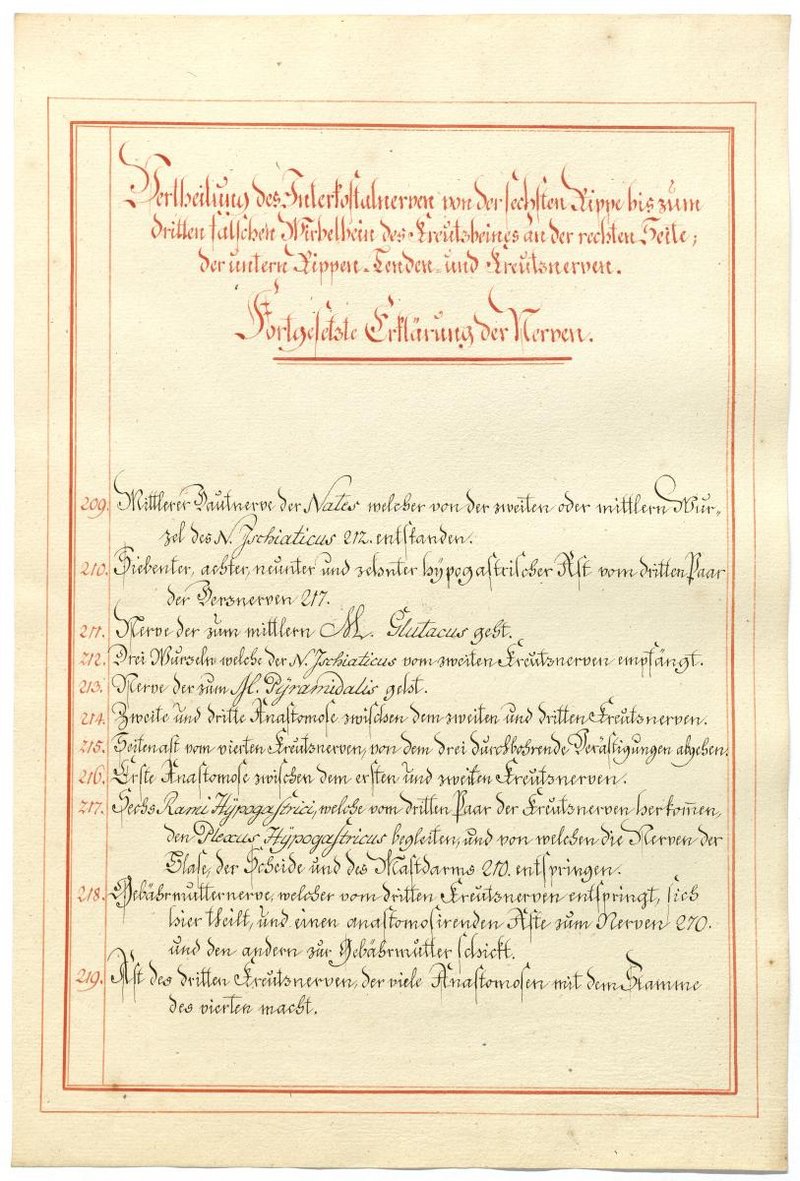 Vertheilung des Interkostalnerven von der sechsten Rippe bis zum
dritten falschen Wirbelbein des Kreutzbeines an der rechten Seite;
der untern Rippen-Lenden- und Kreutznerven.
Fortgesetzte Erklärung der Nerven.
209. Mittlerer Hautnerve der Nates welcher von der zweiten oder mittlern Wur-
zel des N. Ischiaticus 212. entstanden.
210. Siebenter, achter, neunter und zehnter hÿpogastrischer Ast vom dritten Paar
der 217.
211. Nerve der zum mittlern M. Glutaeus geht.
212. Drei Wurzeln welche der N. Ischiaticus vom zweiten Kreutznerven empfängt.
213. Nerve der zum M. Pÿramidalis geht.
214. Zweite und dritte Anastomose zwischen dem zweiten und dritten Kreutznerven.
215. Seitenast vom vierten Kreutznerven, von dem drei durchbohrende Verästigungen abgehen.
216. Erste Anastomose zwischen dem ersten und zweiten Kreutznerven.
217. Sechs Rami Hÿpogastrici, welche vom dritten Paar der Kreutznerven herkom̅en,
den Plexus Hÿpogastricus begleiten, und von welchen die Nerven der
Blase, der Scheide und des Mastdarms 210. entspringen.
218. Gebährmutternerve, welcher vom dritten Kreutznerven entspringt, sich
hier theilt, und einen anastomosirenden Aste zum Nerven 270.
und den andern zur Gebährmutter schickt.
219. Ast des dritten Kreutznerven, der viele Anastomosen mit dem Stamme
des vierten macht.